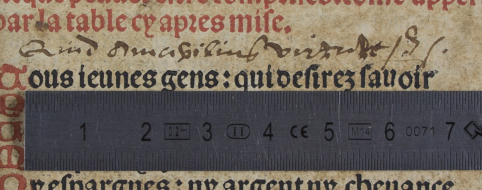 par la table cy apres mise.
Quid Amabilius virtute
Tous ieunes gens : qui desirez sauoir
1 2 3 4 CE 5 M14 6 0071 7
y espargnes : ny argent ny cheuance